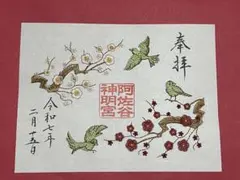 奉拝
阿佐谷
神明宮
令和七年
二月十五日